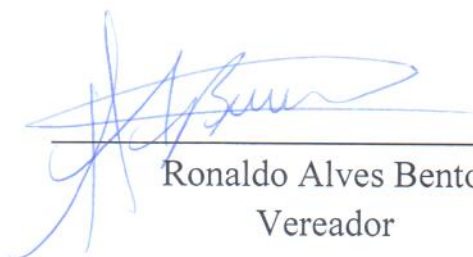 Ronaldo Alves Bento
Vereador